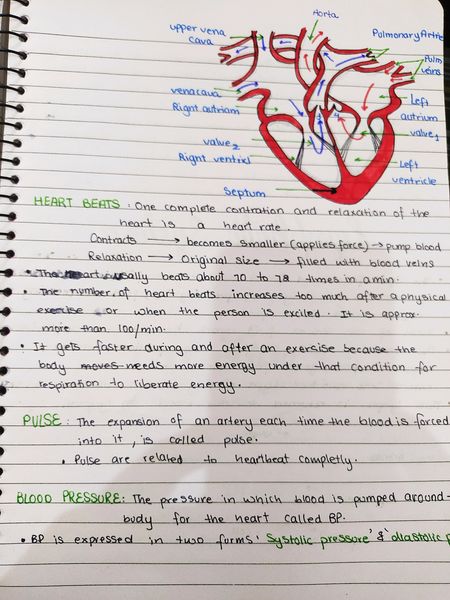 Aorta
upper vena
cava
Pulmonary Arte
Pulm
veins
vena cava
Right autriam
Left
autrium
valve1
valve2
Right ventricl
Left
ventricle
Septum
HEART BEATS : One complete contration and relaxation of the
heart is a heart rate.
Contracts → becomes smaller (applies force) → pump blood
Relaxation → Original size → filled with blood veins
• The heart usually beats about 70 to 78 times in a min.
• The number of heart beats increases too much after a physical
exercise or when the person is exciled. It is approx.
more than 100/min.
• It gets faster during and after an exersise because the
body moves needs more energy under that condition for
respiration to liberate energy.
PULSE : The expansion of an artery each time the blood is forced
into it, is called pulse.
• Pulse are related to heartbeat completly.
BLOOD PRESSURE: The pressure in which blood is pumped around-
body for the heart called BP.
• BP is expressed in two forms 'Systolic pressure' & 'diastolic p